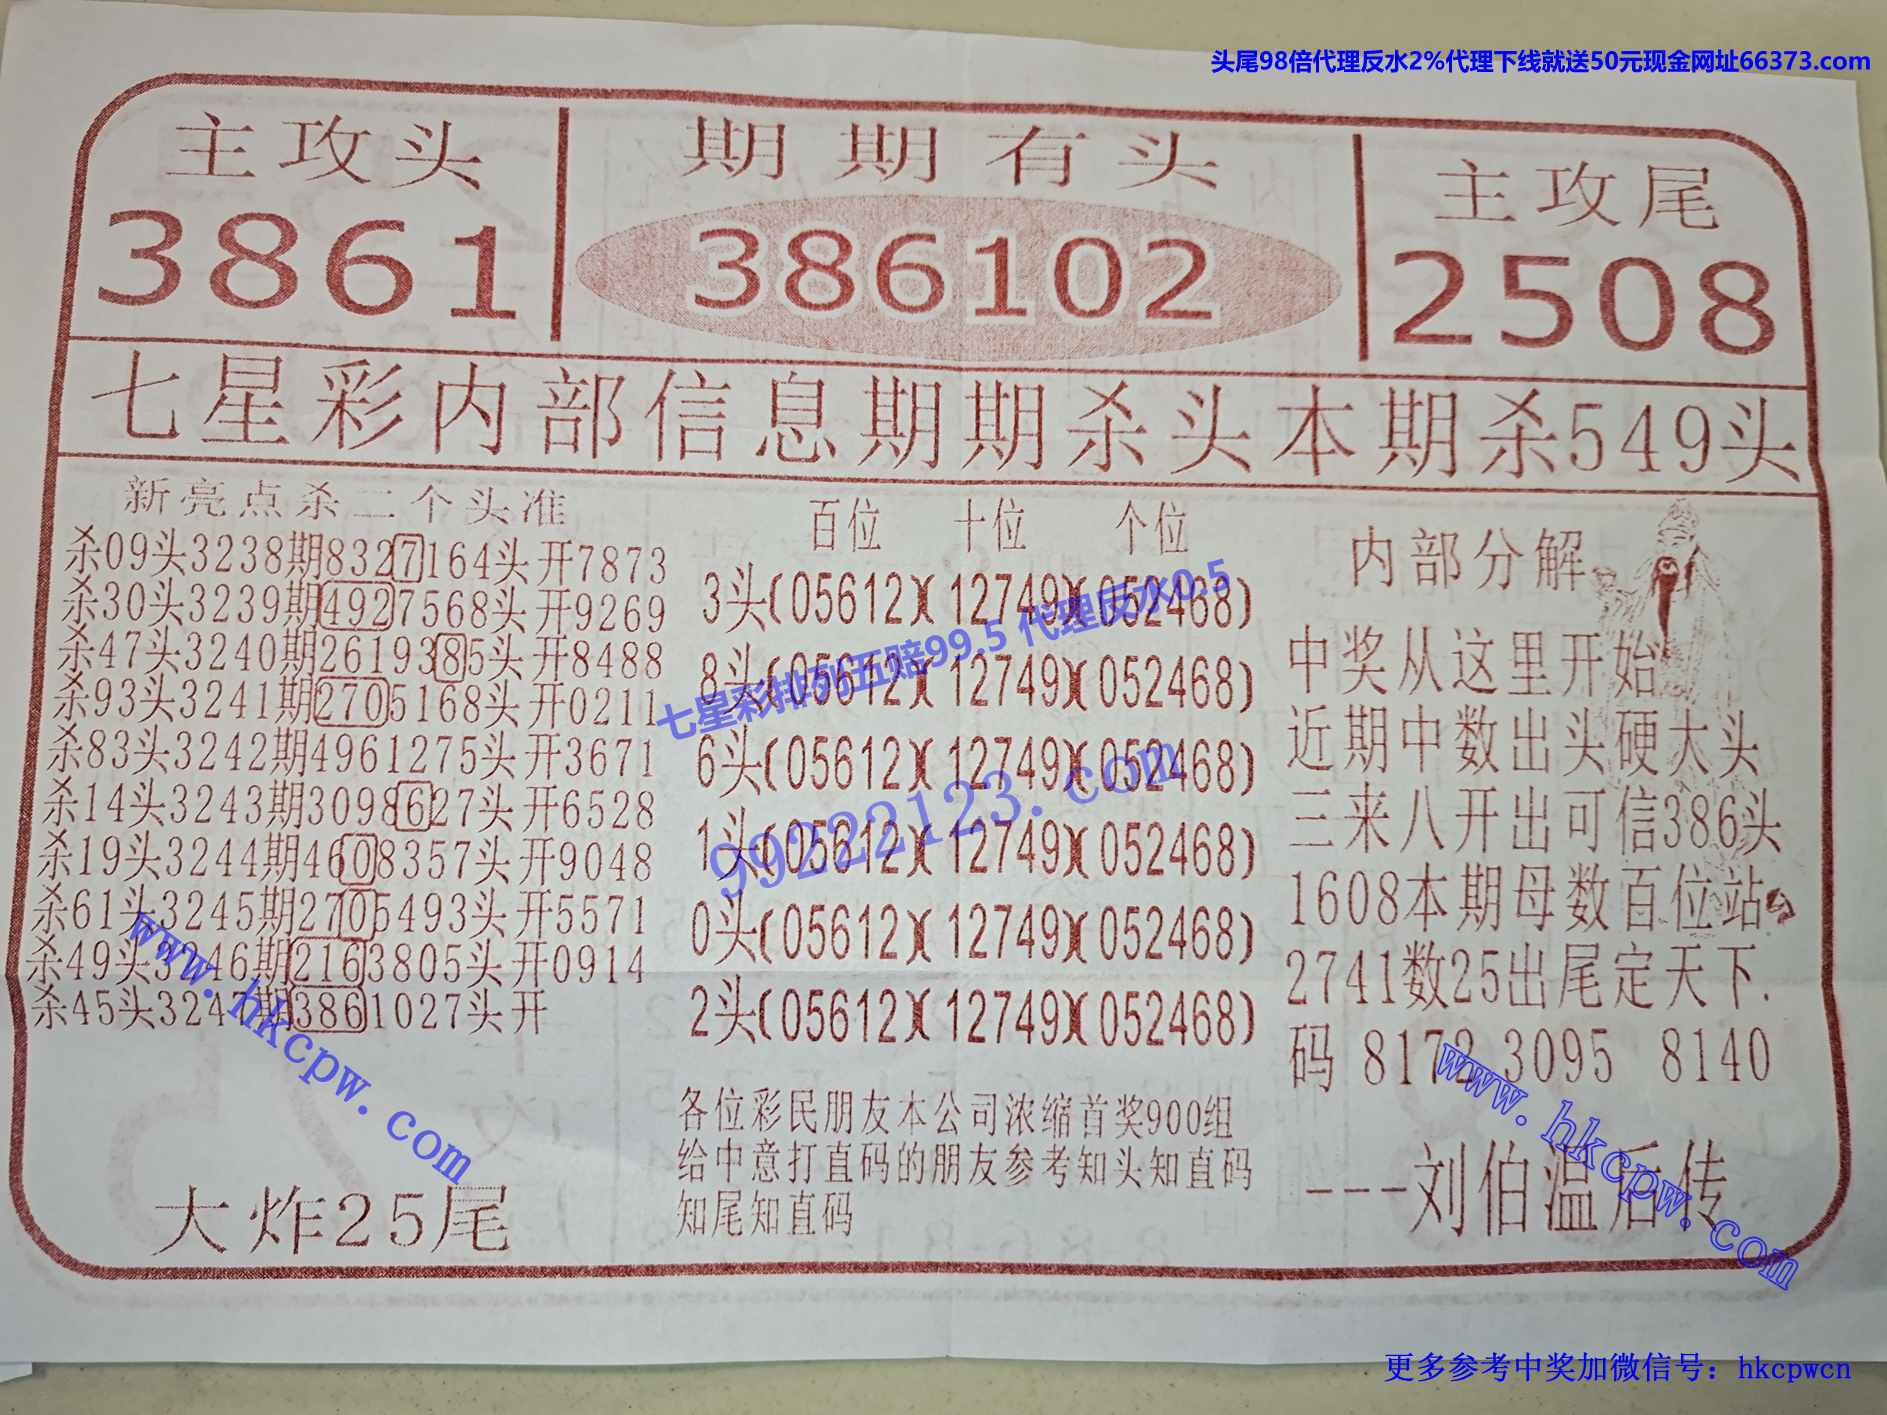 头尾98倍代理反水2%代理下线就送50元现金网址66373.com
主攻头
3861
期期有头
386102
主攻尾
2508
七星彩内部信息期期杀头本期杀549头
新亮点杀二个头准
杀09头3238期8327164头开7873
杀30头3239期4927568头开9269
杀47头3240期2619385头开8488
杀93头3241期2705168头开0211
杀83头3242期4961275头开3671
杀14头3243期3098627头开6528
杀19头3244期4608357头开9048
杀61头3245期2705493头开5571
杀49头3246期2163805头开0914
杀45头3247期3861027头开
大炸25尾
百位 十位 个位
3头(05612)(12749)(052468)
8头(05612)(12749)(052468)
6头(05612)(12749)(052468)
1头(05612)(12749)(052468)
0头(05612)(12749)(052468)
2头(05612)(12749)(052468)
各位彩民朋友本公司浓缩首奖900组
给中意打直码的朋友参考知头知直码
知尾知直码
内部分解
中奖从这里开始
近期中数出头硬太头
三来八开出可信386头
1608本期母数百位站
2741数25出尾定天下.
码 8172 3095 8140
---刘伯温后传
七星彩排列五赔99.5 代理反水0.5
99222123.com
www.hkcpw.com
www.hkcpw.com
更多参考中奖加微信号：hkcpwcn